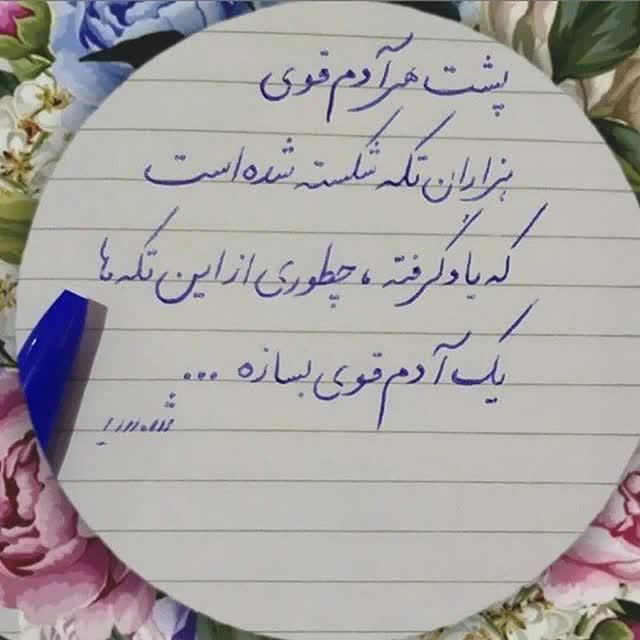 پشت هر آدم قوی
هزاران تکه شکسته شده است
که یاد گرفته، چطوری از این تکه ها
یک آدم قوی بسازه ...